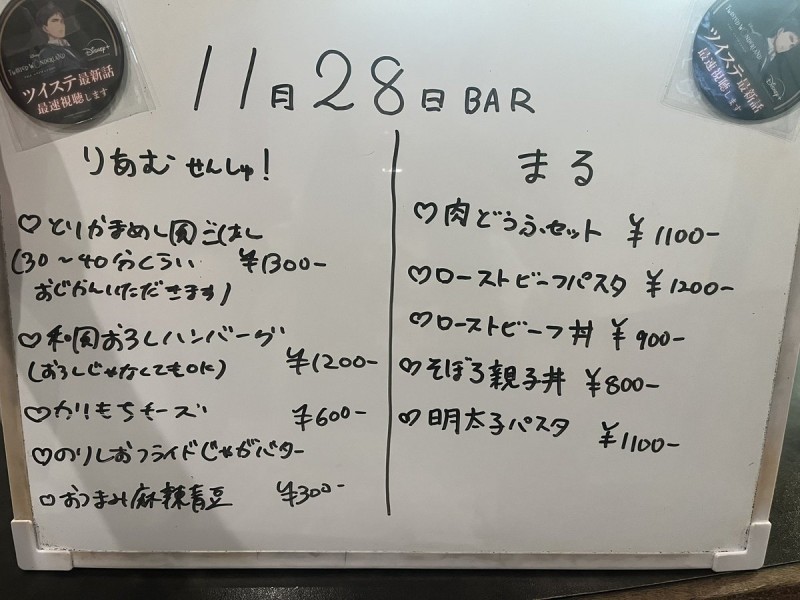 Disney+
ツイステ最新話
最速視聴します
Disney+
ツイステ最新話
最速視聴します
11月28日BAR
りあむせんしゅ!
♡とりかまめし風ごはん
(30~40分くらい ¥1300-
おじかんいただきます)
♡和風おろしハンバーグ
(おろしじゃなくてもOK) ¥1200-
♡カリもちチーズ ¥600-
♡のりしおフライドじゃがバター
♡おつまみ麻辣青豆 ¥300-
まる
♡肉どうふセット ¥1100-
♡ローストビーフパスタ ¥1200-
♡ローストビーフ丼 ¥900-
♡そぼろ親子丼 ¥800-
♡明太子パスタ ¥1100-